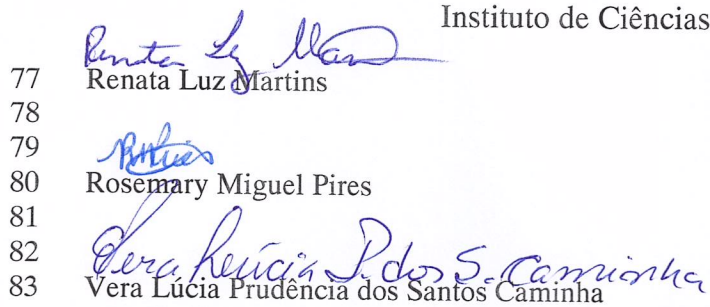 Instituto de Ciências
Renata Luz Mar
77 Renata Luz Martins
78
79
80 Rosemary Miguel Pires
81
82 Vera Lúcia P. dos S. Caminha
83 Vera Lúcia Prudência dos Santos Caminha